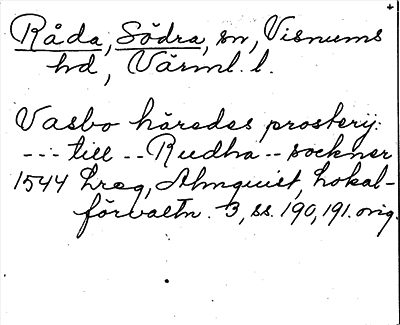 Råda, Södra, sn, Visnums
hd, Värml. l.
Vasbo häredes prosterij:
--- till -- Rudha -- sockner
1544 Lreg, Almquist, Lokal-
förvaltn. 3, ss. 190, 191. orig.